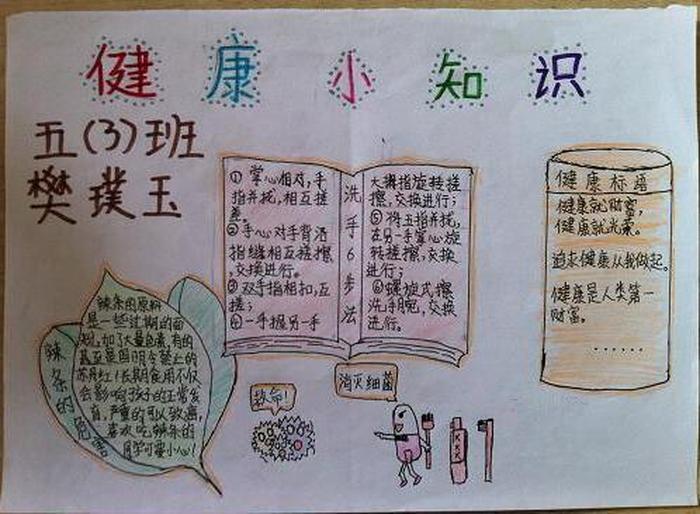 健康小知识
五(3)班
樊璞玉
① 掌心相对,手
指并拢,相互搓
差。
②手心对手背沿
指缝相互搓擦
,交换进行。
③双手指相扣,互
搓;
④一手握另一手
洗手6步法
大拇指旋转搓
擦,交换进行;
⑤将五指并拢,
在另一手掌心旋
转搓擦,交换
进行;
⑥螺旋式擦
洗手腕,交换
进行。
健康标语
健康就财富,
健康就光荣。
追求健康从我做起。
健康是人类第一
财富。
......
辣条的危害
辣条的原料
是一些过期的面
粉,加了大量色素,有的
甚至是国明令禁止的
苏丹红!长期食用不仅
会影响孩子的正常发
育,严重的可以致癌,
喜欢吃辣条的
同学可要小心!
救命!
消灭细菌